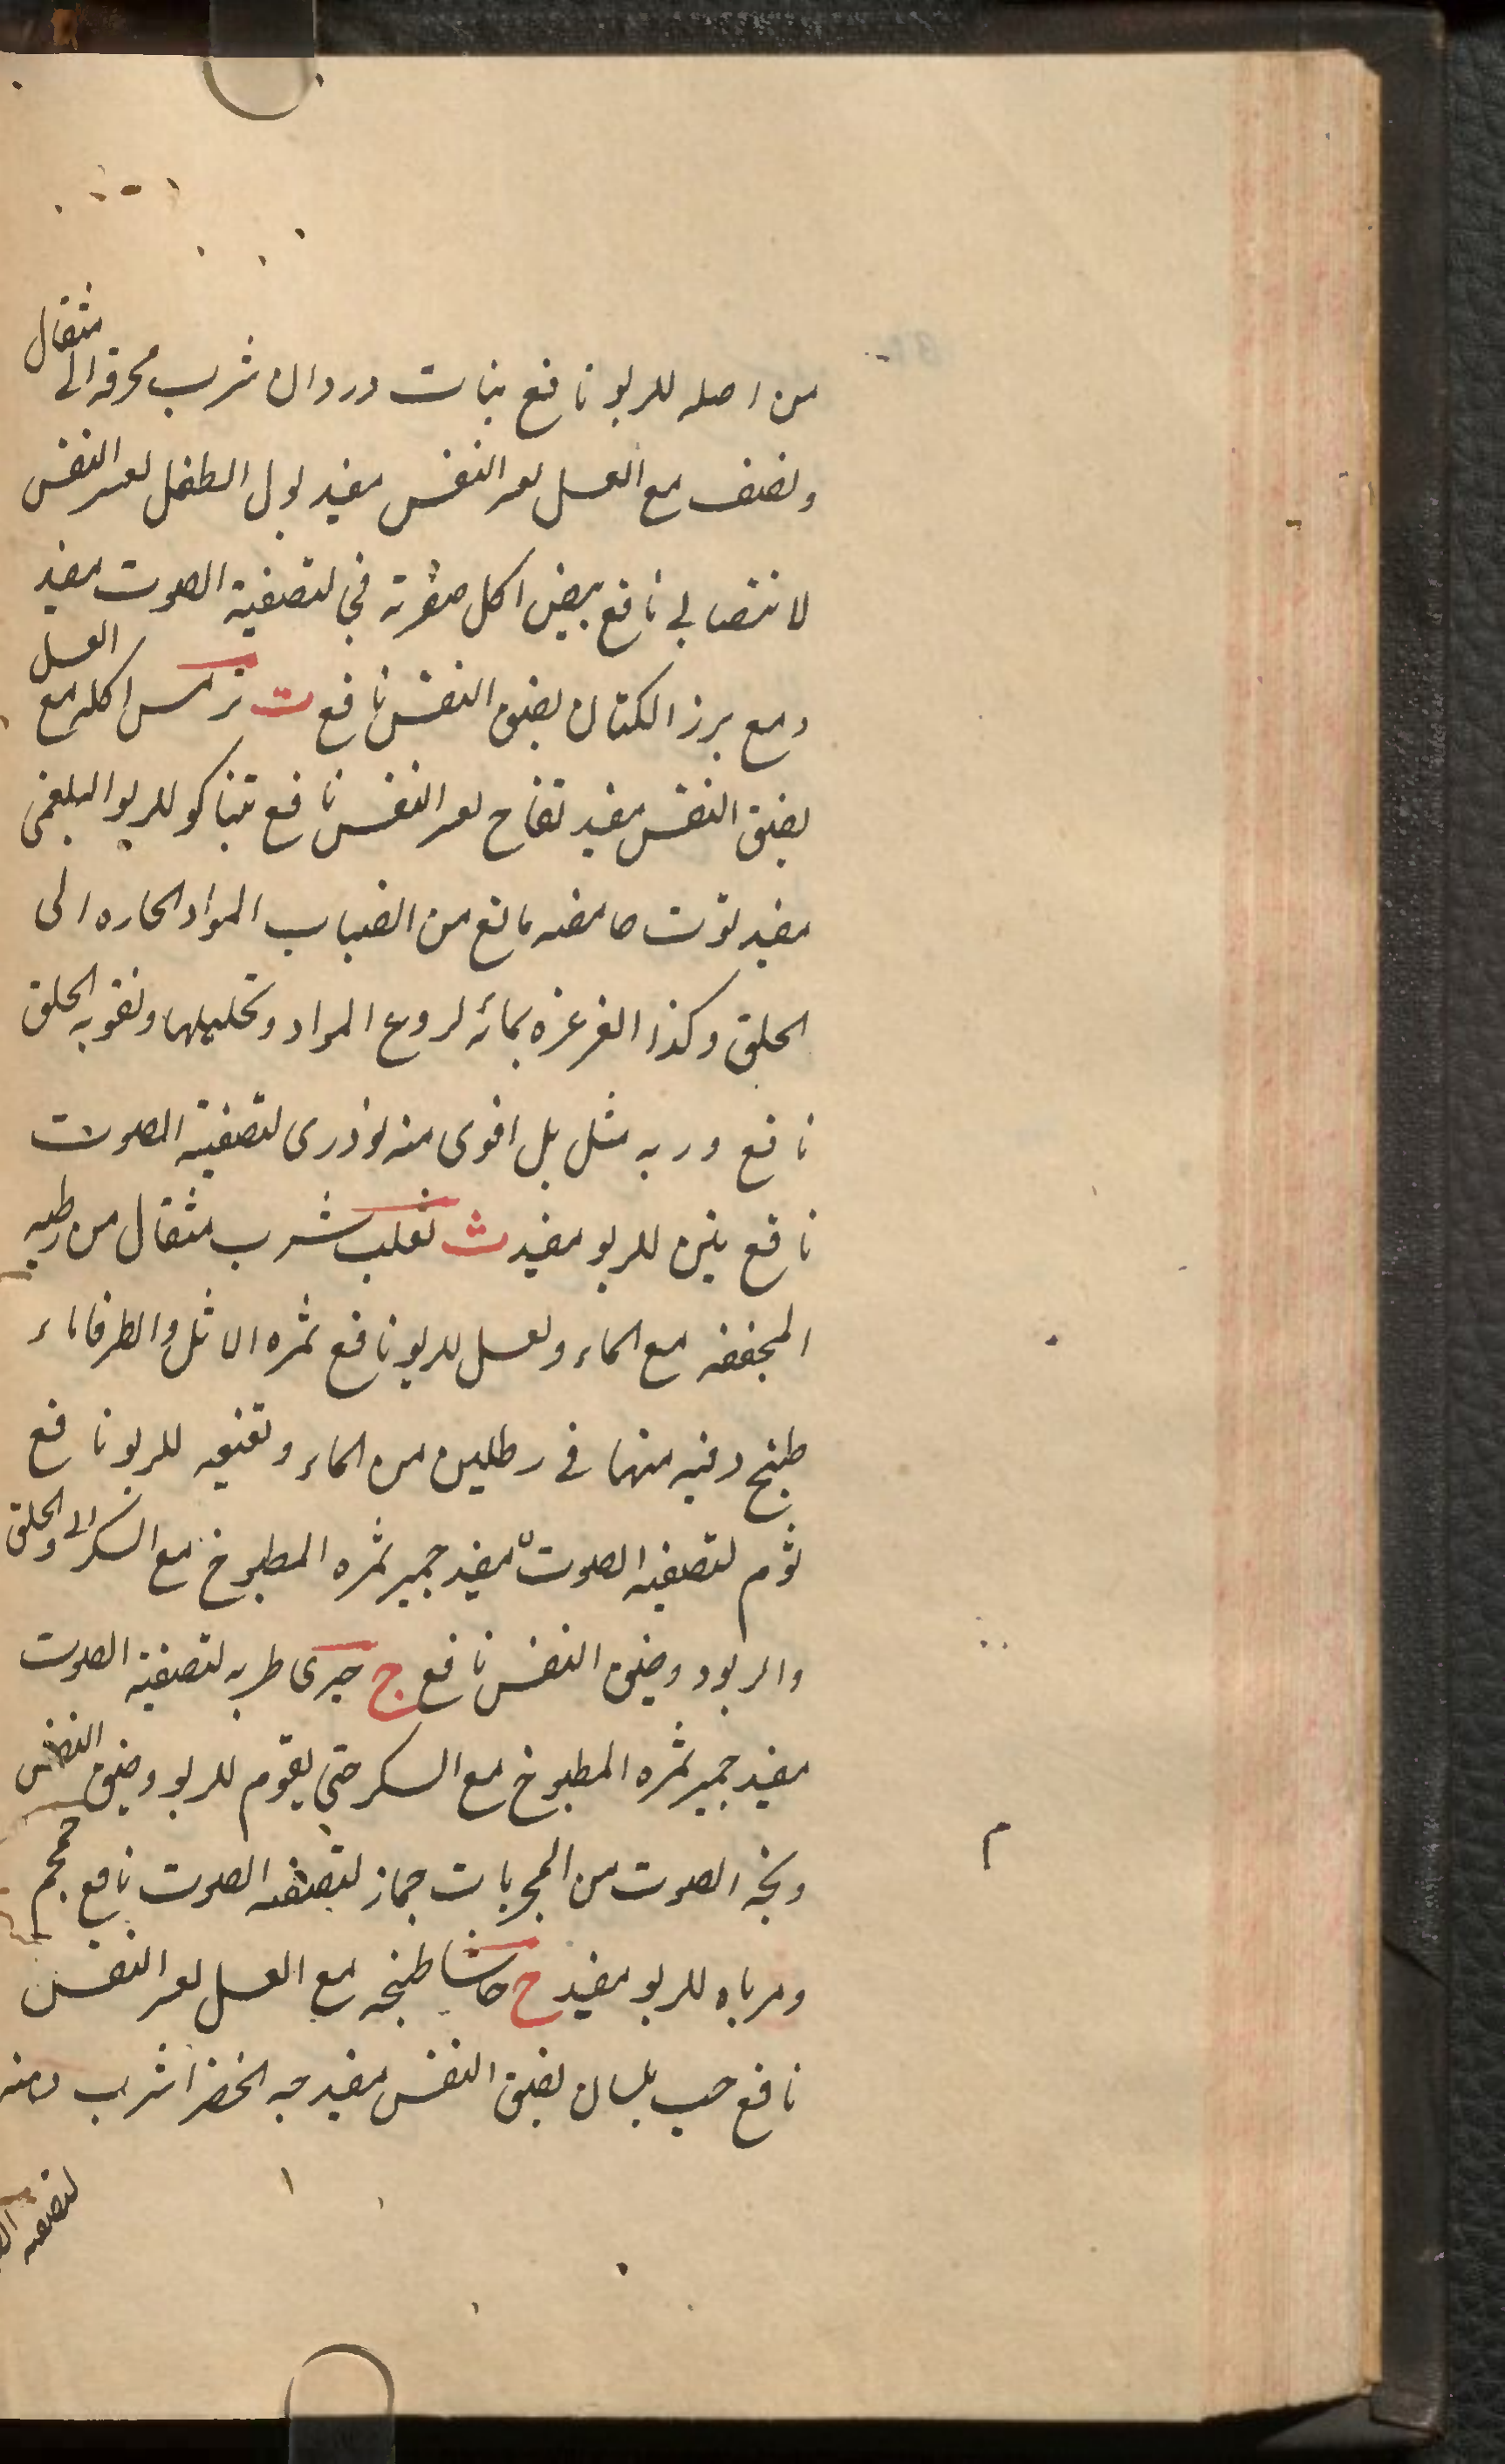 من اصله للربو نافع بنات وردان شرب محرقه الى مثقال
ونصف مع العسل لعسر النفس مفيد بول الطفل لعسر النفس
لانتصابى نافع بيض اكل صفرته نى لتصفية الصوت مفيد
ومع برز الكتان لضيق النفس نافع ت ترمس اكله مع العسل
لضيق النفس مفيد تفاح لعسر النفس نافع تنباكو للربو البلغمى
مفيد توت حامضه مانع من انصباب المواد الحاره الى
الحلق وكذا الغرغره بمائه لردع المواد وتحليلها وتقويه الحلق
نافع وربه مثل بل اقوى منه توذرى لتصفية الصوت
نافع تين للربو مفيد ث ثعلب شرب مثقال من رطبه
المجففه مع الماء ولعسل للربو نافع ثمره الاثل والطرفا ماء
طبخ وقيه منها فى رطلين من الماء ونقيعه للربو نافع
ثوم لتصفيه الصوت مفيد جميز ثمره المطبوخ مع السكر الى والحلق
والربو وضيق النفس نافع ج جزرى طربه لتصفية الصوت
مفيد جميز ثمره المطبوخ مع السكر حتى يقوم للربو وضيق النفس
وبحّه الصوت من المجربات جماز لتصفيه الصوت نافع حمحم
ومرباه للربو مفيد ح حاشا طبخه مع العسل لعسر النفس
نافع حب بلسان لضيق النفس مفيد حبه الخضرا شرب دهنه
لتصفيه
م